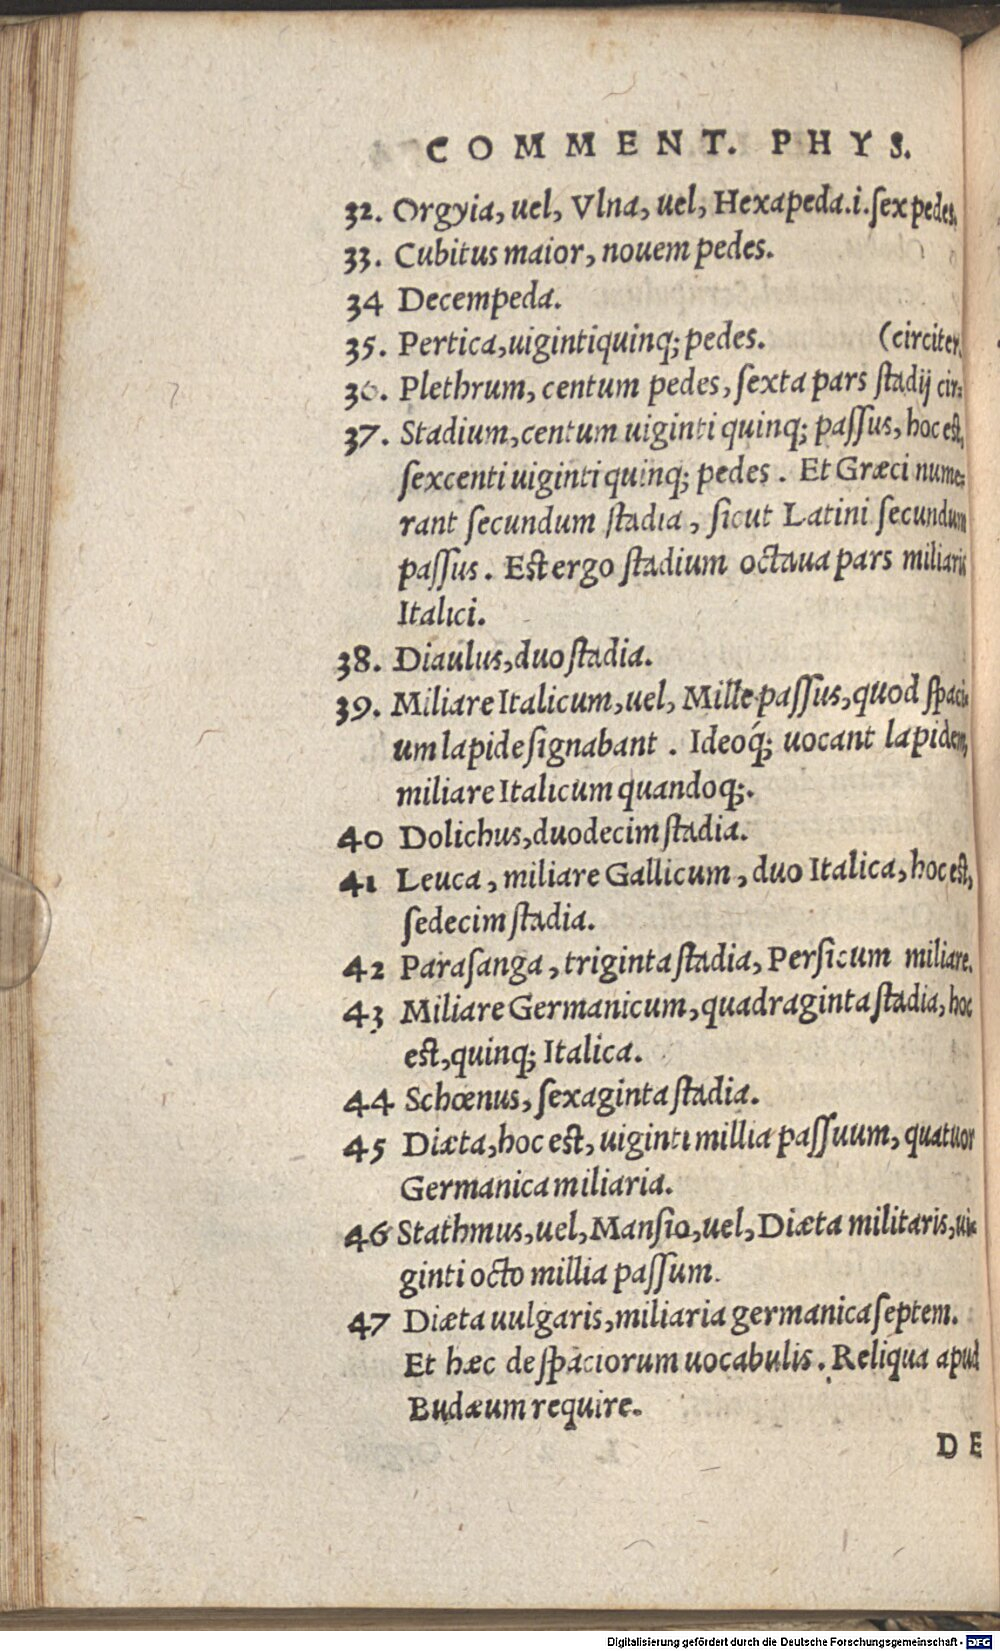 COMMENT. PHYS.
32. Orgyia, uel, Vlna, uel, Hexapeda.i.ſex pedes.
33. Cubitus maior, nouem pedes.
34 Decempeda.
35. Pertica, uigintiquinq; pedes. (circiter.
36. Plethrum, centum pedes, ſexta pars ſtadij cir-
37. Stadium, centum uiginti quinq; paſſus, hoc eſt,
ſexcenti uiginti quinq; pedes. Et Græci nume-
rant ſecundum ſtadia, ſicut Latini ſecundum
paſſus. Eſt ergo ſtadium octaua pars miliaris
Italici.
38. Diaulus, duo ſtadia.
39. Miliare Italicum, uel, Mille paſſus, quod ſpaci-
um lapide ſignabant. Ideoq́; uocant lapidem,
miliare Italicum quandoq;.
40 Dolichus, duodecim ſtadia.
41 Leuca, miliare Gallicum, duo Italica, hoc eſt,
ſedecim ſtadia.
42 Paraſanga, triginta ſtadia, Perſicum miliare.
43 Miliare Germanicum, quadraginta ſtadia, hoc
eſt, quinq; Italica.
44 Schœnus, ſexaginta ſtadia.
45 Diæta, hoc eſt, uiginti millia paſſuum, quatuor
Germanica miliaria.
46 Stathmus, uel, Manſio, uel, Diæta militaris, ui-
ginti octo millia paſſum.
47 Diæta uulgaris, miliaria germanica ſeptem.
Et hæc de ſpaciorum uocabulis. Reliqua apud
Budæum require.
DE
Digitalisierung gefördert durch die Deutsche Forschungsgemeinschaft - DFG